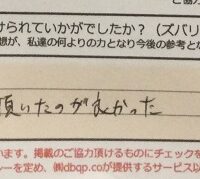 けられていかがでしたか？（ズバリ
想が、私達の何よりの力となり今後の参考とな
頂いたのが良かった
います。掲載のご協力頂けるものにチェックを
シーを定め、㈱dbqp.coが提供するサービス以